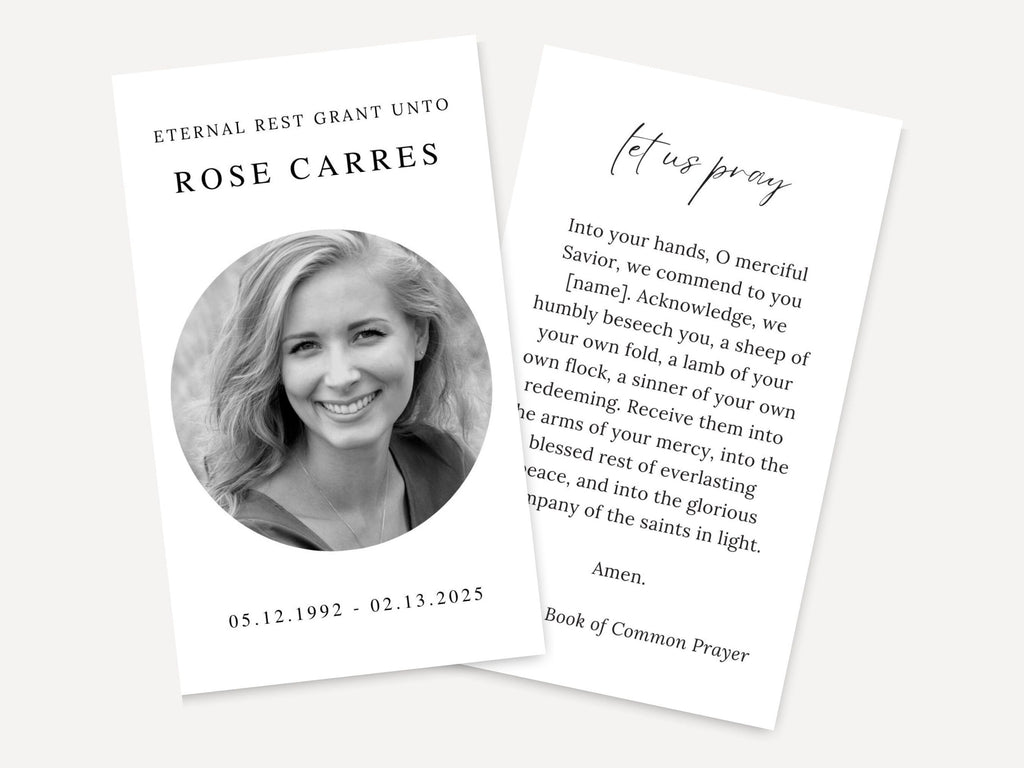 ETERNAL REST GRANT UNTO
ROSE CARRES
05.12.1992 - 02.13.2025
let us pray
Into your hands, O merciful
Savior, we commend to you
[name]. Acknowledge, we
humbly beseech you, a sheep of
your own fold, a lamb of your
own flock, a sinner of your own
redeeming. Receive them into
arms of your mercy, into the
blessed rest of everlasting
and into the glorious
of the saints in light.
Amen.
Book of Common Prayer